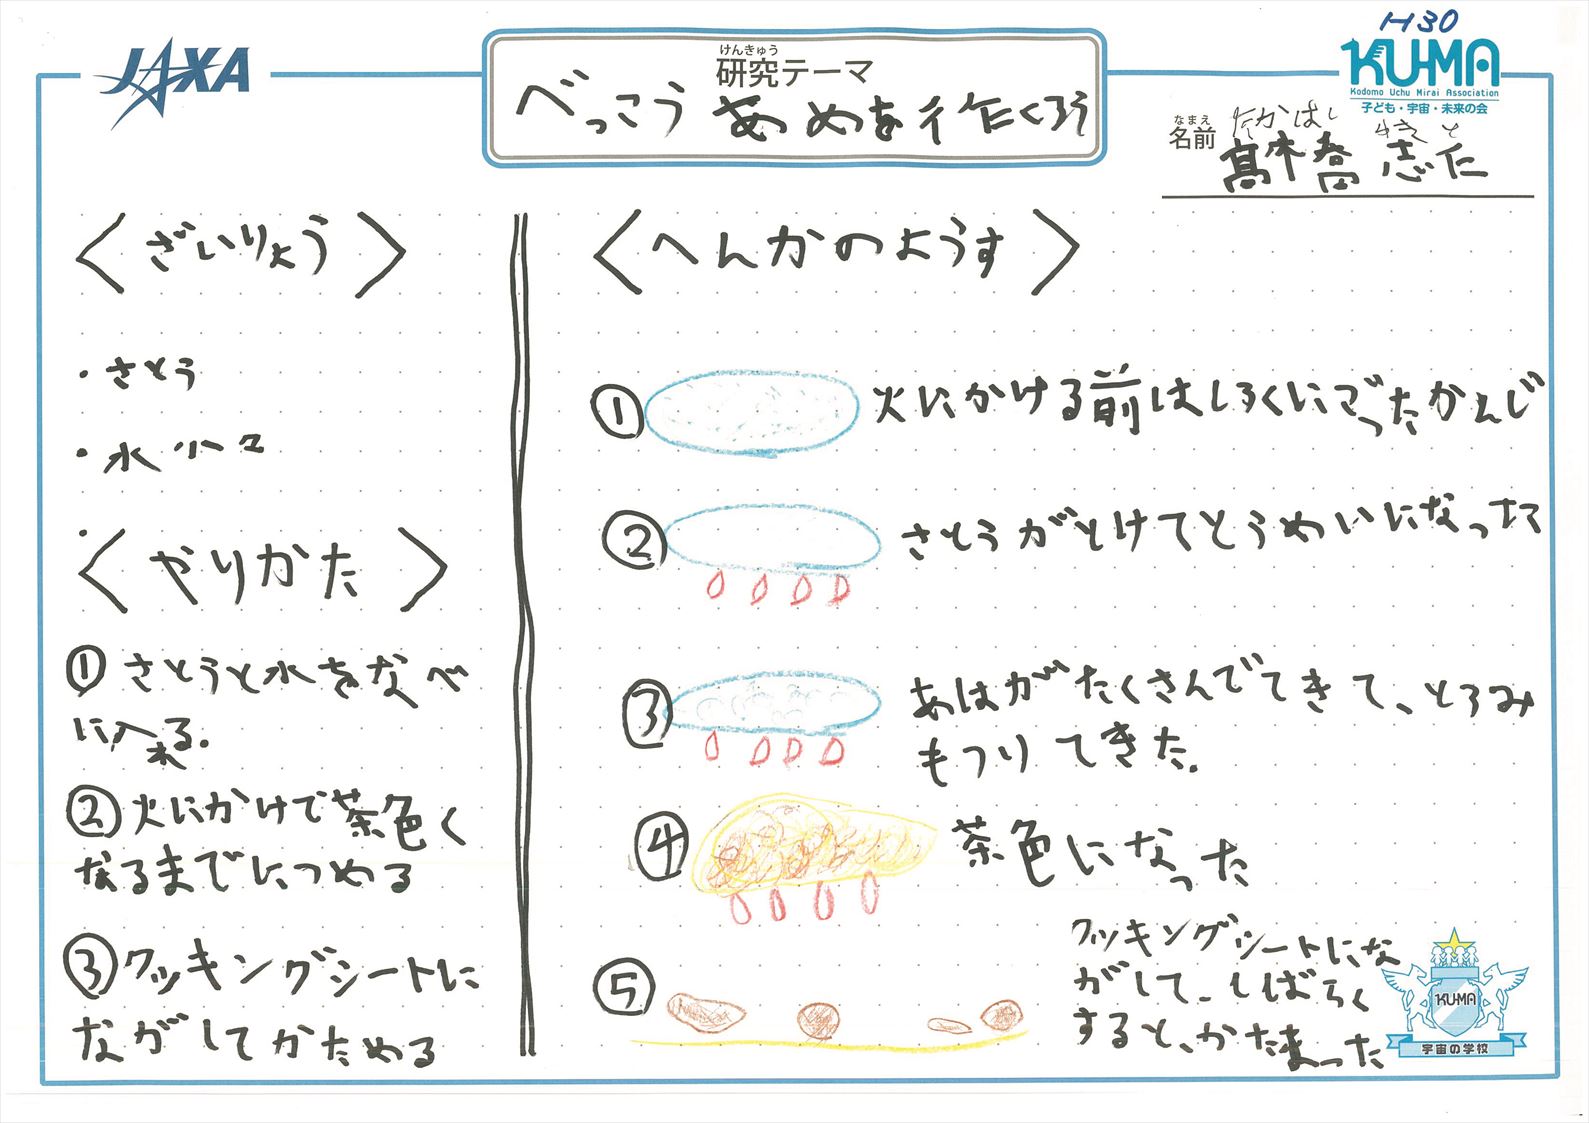 H30
JAXA
KU-MA
Kodomo Uchu Mirai Association
子ども・宇宙・未来の会
けんきゅう
研究テーマ
べっこうあめを作たくろう
なまえ
名前
たかはし ゆきと
髙橋 志仁
〈ざいりょう〉
・さとう
・水 少々
〈やりかた〉
①さとうと水をなべ
に入れる.
②火にかけて茶色く
なるまでにつめる
③クッキングシートに
ながしてかためる
〈へんかのようす〉
①火にかける前はしろくにごったかんじ
②さとうがとけてとうめいになった
③あはがたくさんでてきて、とろみ
もつりてきた.
④茶色になった
⑤クッキングシートにな
がして、しばらく
すると、かたまった
KU-MA
宇宙の学校